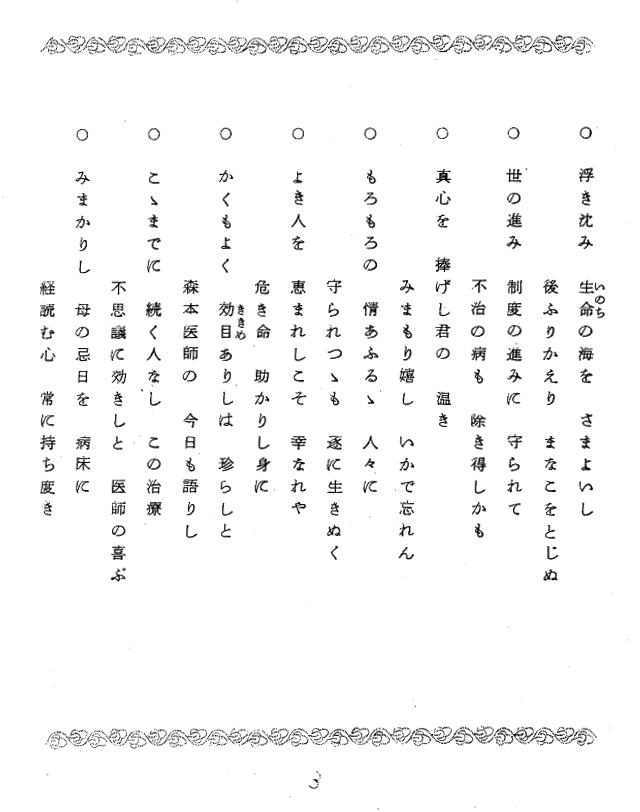 ○ 浮き沈み 生命の海を さまよいし
いのち
後ふりかえり まなこをとじぬ
○ 世の進み 制度の進みに 守られて
不治の病も 除き得しかも
○ 真心を 捧げし君の 温き
みまもり嬉し いかで忘れん
○ もろもろの 情あふるゝ 人々に
守られつゝも 逐に生きぬく
○ よき人を 恵まれしこそ 幸なれや
危き命 助かりし身に
○ かくもよく 効目ありしは 珍らしと
ききめ
森本医師の 今日も語りし
○ こゝまでに 続く人なし この治療
不思議に効きしと 医師の喜ぶ
○ みまかりし 母の忌日を 病床に
経読む心 常に持ち度き
3